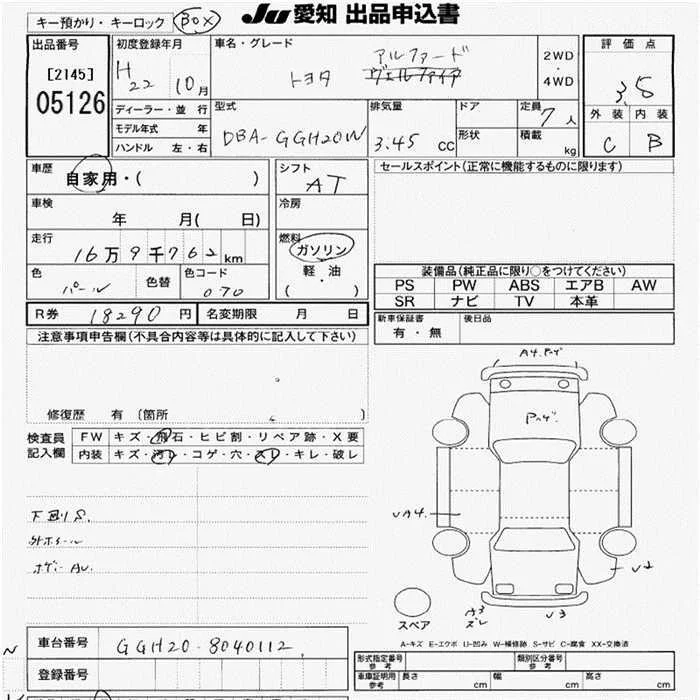 JU 愛知 出品申込書
キー預かり・キーロック BOX
出品番号 [2145] 05126
初度登録年月 H22 10月
車名・グレード トヨタ アルファード ヴェルファイア
2WD・4WD
評価点 3.5
外装 C 内装 B
ディーラー・並行
モデル年式 年
ハンドル 左・右
型式 DBA-GGH20W
排気量 3.45 cc
ドア
形状
定員 7人
積載 kg
車歴 自家用・( )
シフト AT
セールスポイント(正常に機能するものに限ります)
車検 年 月( 日)
冷房
走行 16万9千762km
燃料 ガソリン・軽・油 ( )
色 パール 色替 色コード 070
装備品(純正品に限り○をつけてください)
PS PW ABS エアB AW
SR ナビ TV 本革
R券 18290円 名変期限 月 日
新車保証書 有・無 後日品
注意事項申告欄(不具合内容等は具体的に記入して下さい)
修復歴 有 〔箇所 〕
検査員記入欄
FW キズ・飛石・ヒビ割・リペア跡・X要
内装 キズ・汚レ・コゲ・穴・スレ・キレ・破レ
下回りS.
外ホイール
ボデーAU.
UA4.
U2
A3
スレ
U3
スペア
A-キズ E-エクボ U-凹み W-補修跡 S-サビ C-腐食 XX-交換済
車台番号 GGH20-8040112
登録番号
形式指定番号 参考 類別区分番号 参考
車庫証明用 参考 長さ cm 幅 cm 高さ cm